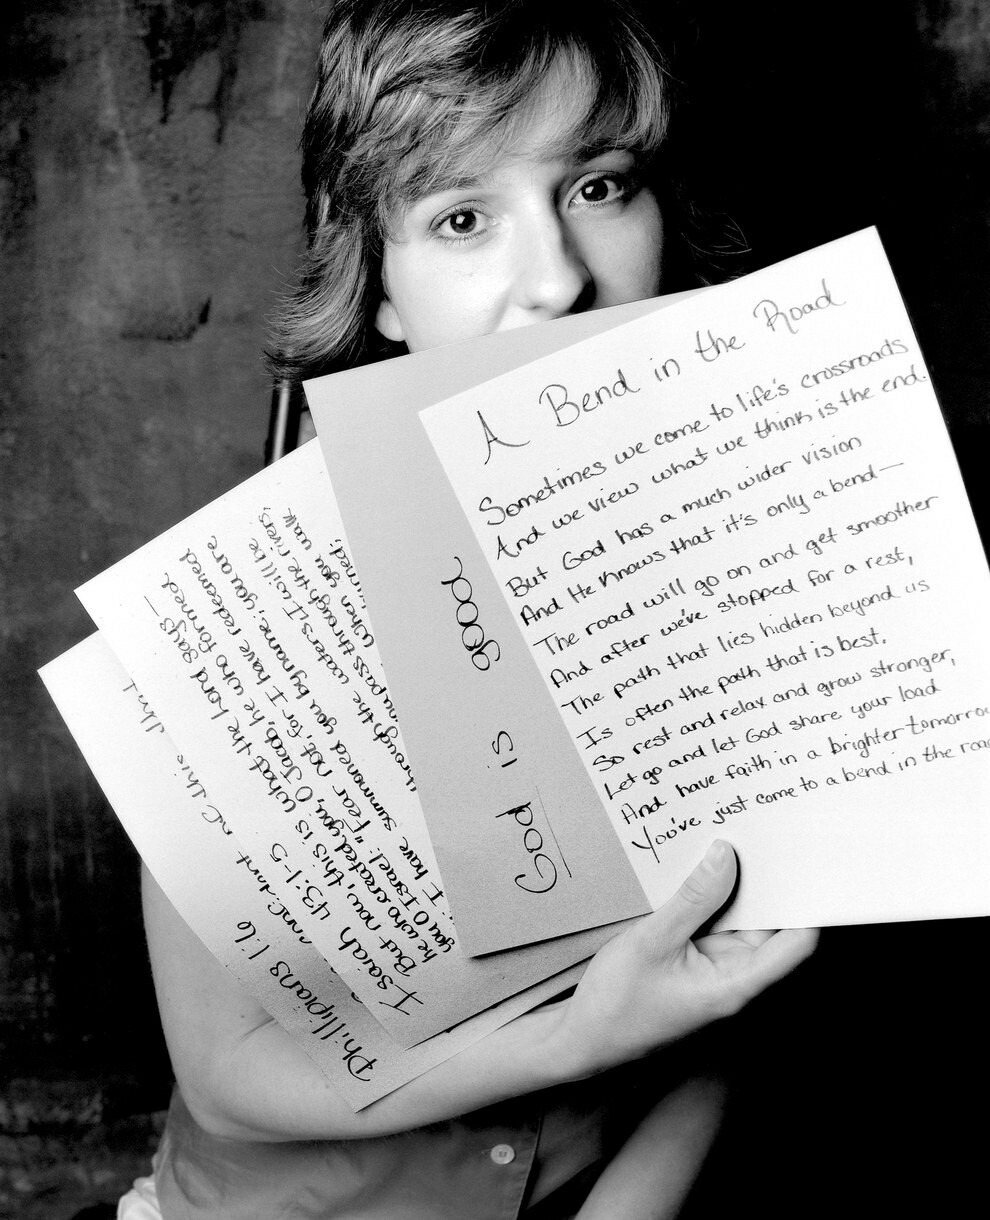 A Bend in the Road
Sometimes we come to life's crossroads
And we view what we think is the end.
But God has a much wider vision
And He knows that it's only a bend—
The road will go on and get smoother
And after we've stopped for a rest,
The path that lies hidden beyond us
Is often the path that is best.
So rest and relax and grow stronger,
Let go and let God share your load
And have faith in a brighter tomorrow
You've just come to a bend in the road
God is good
Isaiah 43:1-5
But now, this is what the Lord says—
he who created you, O Jacob, he who formed
you O Israel: "Fear not, for I have redeemed
I have summoned you by name; you are
through the waters, I will be
you pass through the rivers,
When you walk
Phillipians 1:6
of this